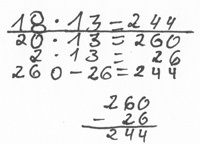 18 · 13 = 244
20 · 13 = 260
2 · 13 = 26
260 - 26 = 244
260
- 26
244